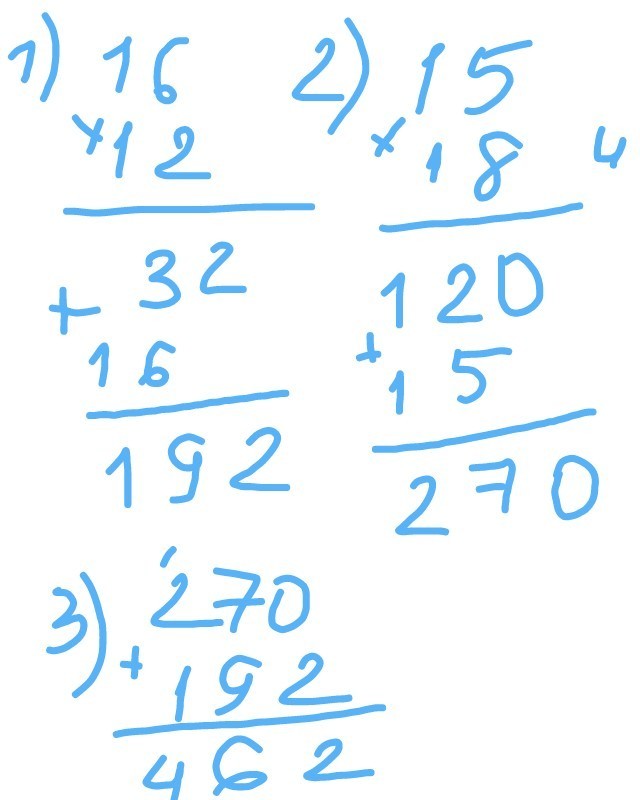 1) 16
×12
+ 32
16
192
2) 15
× 18
4
120
+ 15
270
3) 270
+ 192
462